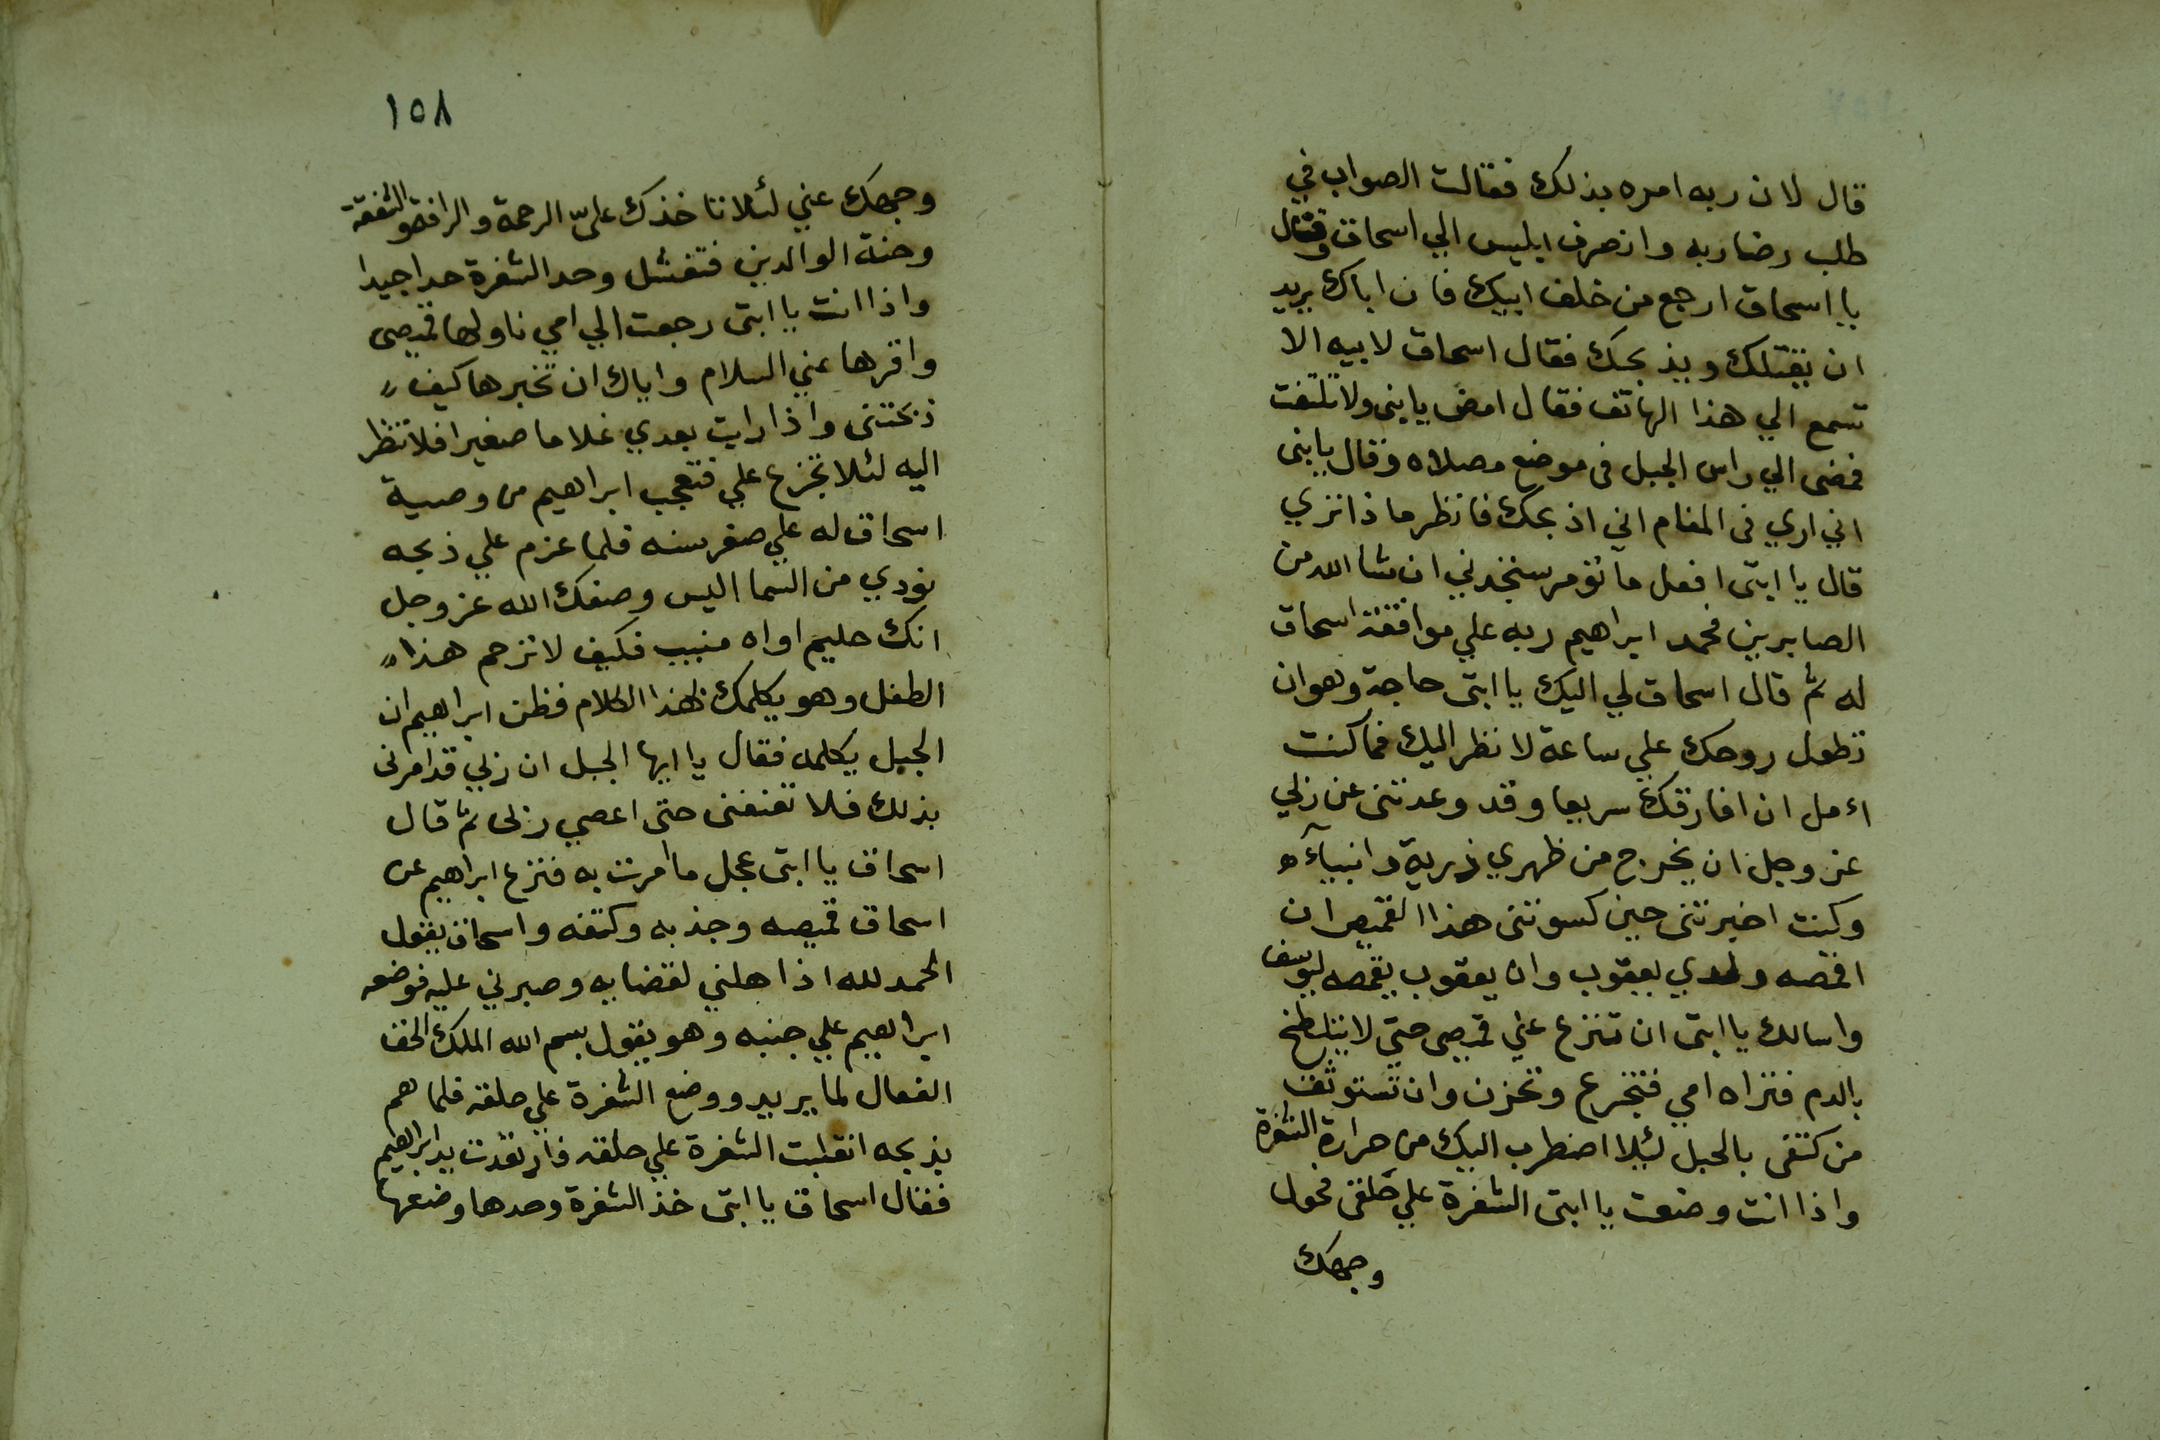 قال لان ربه امره بذلك فقالت الصواب في
طلب رضا ربه وانصرف ابليس الي اسحاق وقال
يا اسحاق ارجع من خلف ابيك فان اباك يريد
ان يقتلك ويذبحك فقال اسحاق لابيه الا
تسمع الي هذا الهاتف فقال امض يا بني ولا تلتفت
فمضى الي راس الجبل في موضع مصلاه وقال يا بنى
اني اري في المنام اني اذبحك فانظر ماذا تري
قال يا ابتى افعل ما تؤمر ستجدني ان شا الله من
الصابرين فحمد ابراهيم ربه علي موافقة اسحاق
له ثم قال اسحاق لي اليك يا ابتى حاجة وهو ان
تطول روحك علي ساعة لانظر اليك فما كنت
اءمل ان افارقك سريعا وقد وعدتنى عن ربي
عز وجل ان يخرج من ظهري ذرية وانبيآء
وكنت اخبرتنى حين كسوتنى هذا القميص ان
اقمصه ولدي يعقوب وان يعقوب يقمصه ليوسف
واسالك يا ابتى ان تنزع عني قميصى حتي لا يتلطخ
بالدم فتراه امي فتجزع وتحزن وان تستوثق
من كتفى بالحبل ليلا اضطرب اليك من حرارة الشفرة
واذا انت وضعت يا ابتى الشفرة علي حلقى فحول
وجهك
١٥٨
وجهك عني لئلا تاخذك علىّ الرحمة والرافة والشفقة
وحنة الوالدين فتفشل وحد الشفرة حدا جيدا
واذا انت يا ابتى رجعت الي امي ناولها قميصى
واقرها عني السلام واياك ان تخبرها كيف
ذبحتنى واذا رايت بعدي غلاما صغيرا فلا تنظر
اليه لئلا تجزع علي فتعجب ابراهيم من وصية
اسحاق له علي صغر سنه فلما عزم علي ذبحه
نودي من السما اليس وصفك الله عز وجل
انك حليم اواه منيب فكيف لا ترحم هذا
الطفل وهو يكلمك بهذا الكلام فظن ابراهيم ان
الجبل يكلمه فقال يا ايها الجبل ان ربي قد امرنى
بذلك فلا تعنفنى حتى اعصي ربى ثم قال
اسحاق يا ابتى عجل ما امرت به فنزع ابراهيم عن
اسحاق قميصه وجذبه وكتفه واسحاق يقول
الحمد لله اذ اهلني لقضايه وصبرني عليه فوضعه
ابراهيم علي جنبه وهو يقول بسم الله الملك الحق
الفعال لما يريد ووضع الشفرة علي حلقه فلما هم
بذبحه انقلبت الشفرة علي حلقه فارتعدت يد ابراهيم
فقال اسحاق يا ابتى خذ الشفرة وحدها وضعها